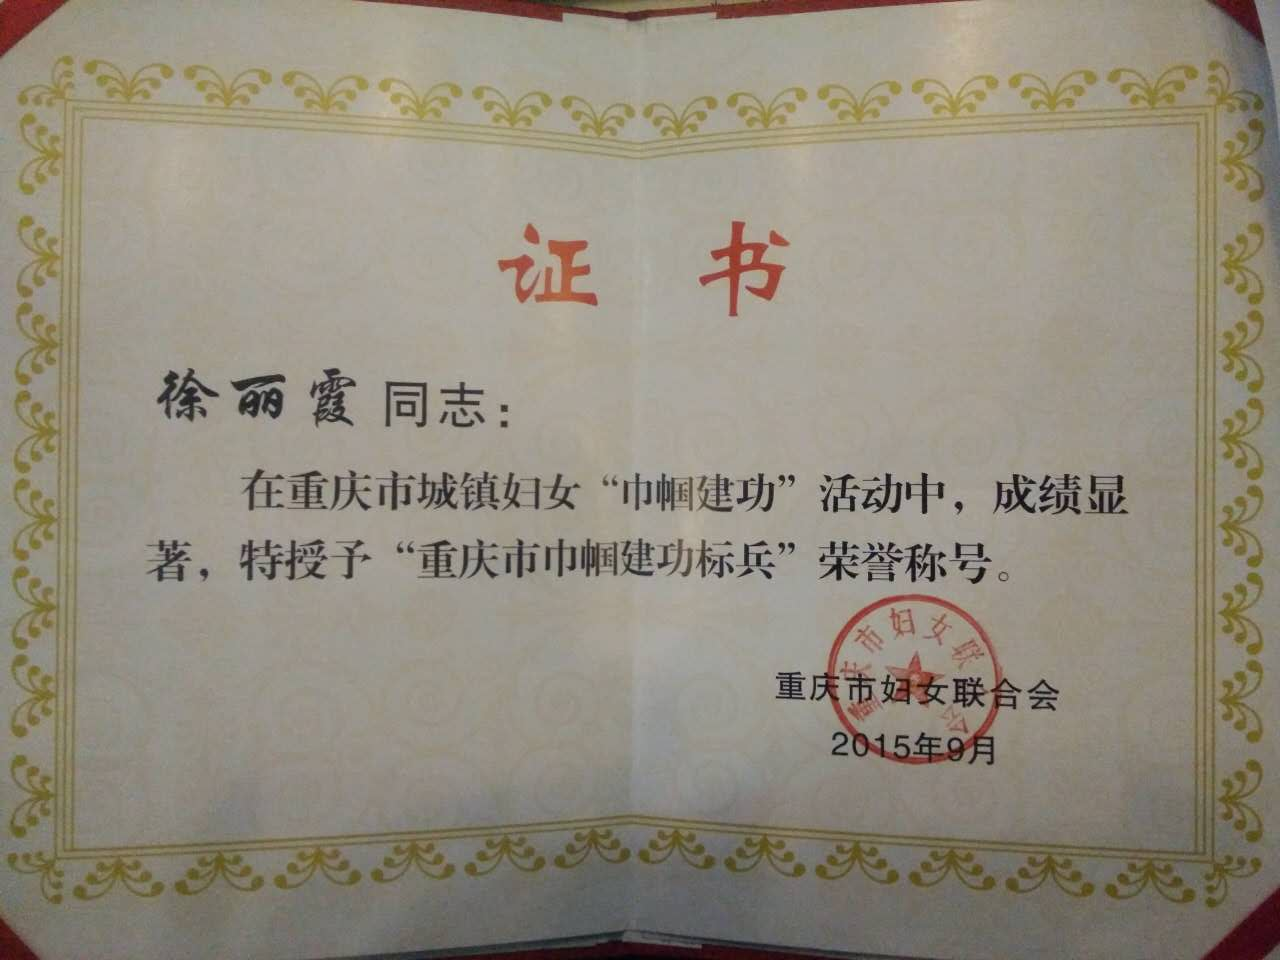 证 书
徐丽霞 同志：
在重庆市城镇妇女“巾帼建功”活动中，成绩显
著，特授予“重庆市巾帼建功标兵”荣誉称号。
重庆市妇女联合会
重庆市妇女联合会
2015年9月